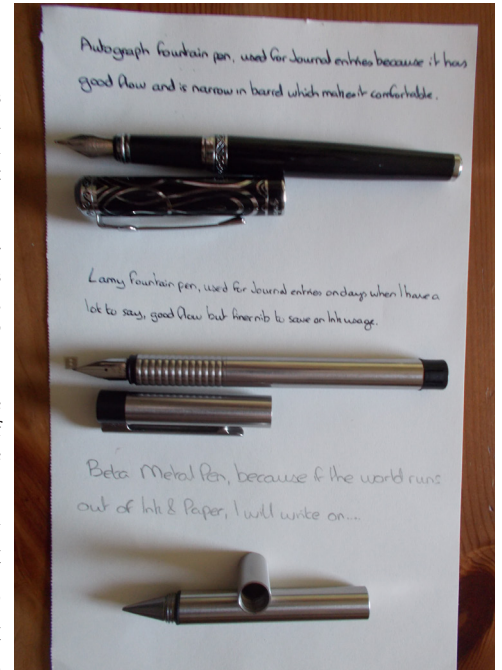 Autograph fountain pen, used for Journal entries because it has
good flow and is narrow in barrel which makes it comfortable.
Lamy fountain pen, used for Journal entries on days when I have a
lot to say, good flow but finer nib to save on Ink usage.
Beta Metal Pen, because if the world runs
out of Ink & Paper, I will write on...